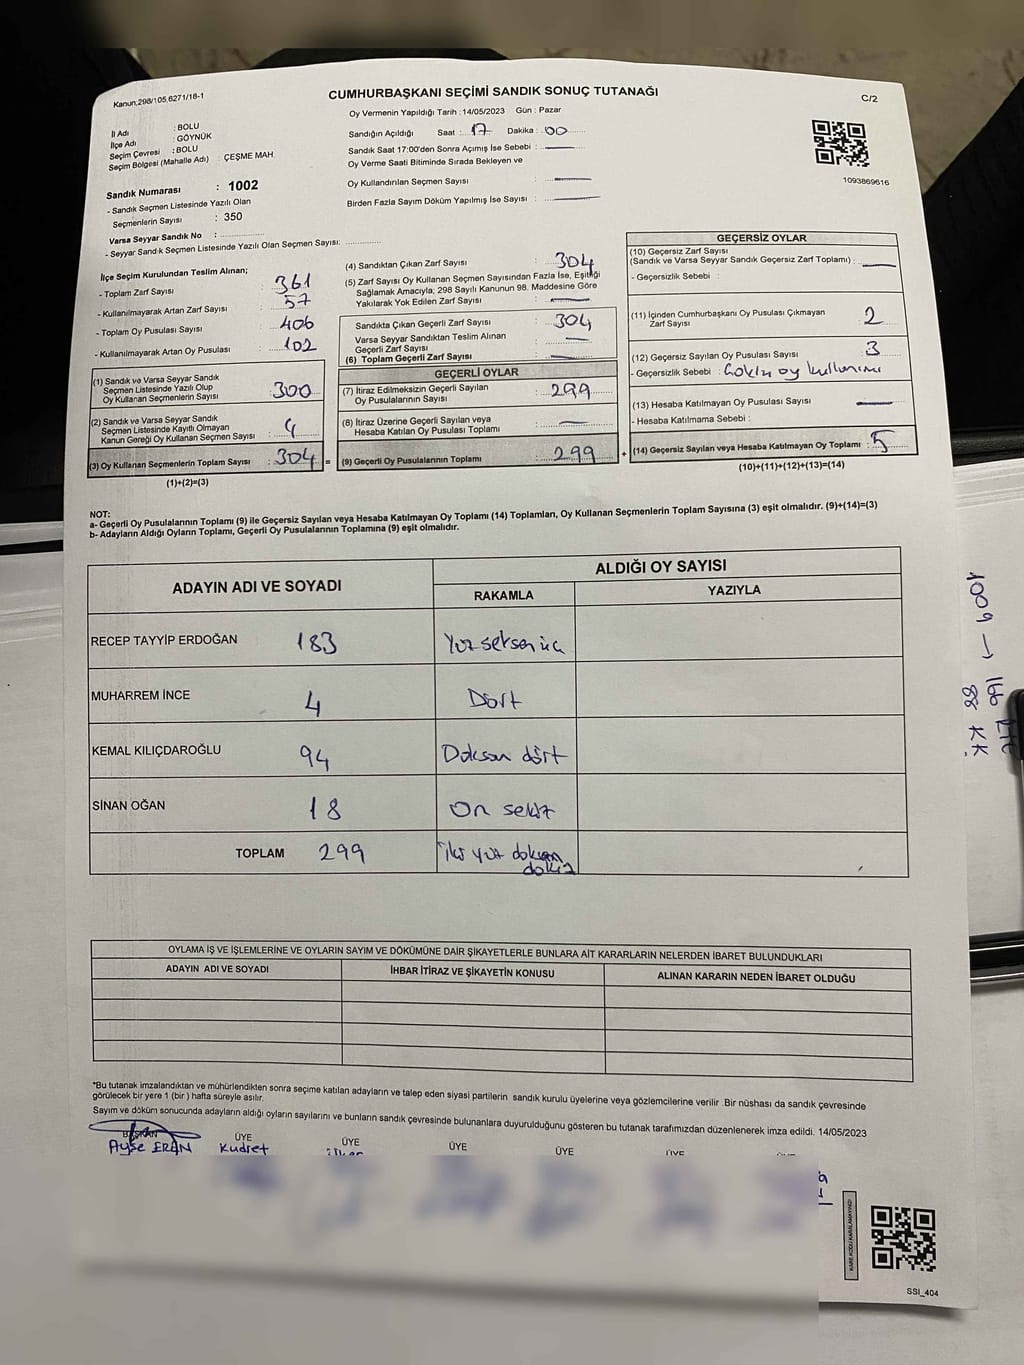 Kanun,298/105,6271/18-1
CUMHURBAŞKANI SEÇİMİ SANDIK SONUÇ TUTANAĞI
C/2
Oy Vermenin Yapıldığı Tarih : 14/05/2023 Gün : Pazar
İl Adı : BOLU
İlçe Adı : GÖYNÜK
Seçim Çevresi : BOLU
Seçim Bölgesi (Mahalle Adı) : ÇEŞME MAH.
Sandık Numarası : 1002
- Sandık Seçmen Listesinde Yazılı Olan
Seçmenlerin Sayısı : 350
Varsa Seyyar Sandık No :
- Seyyar Sandık Seçmen Listesinde Yazılı Olan Seçmen Sayısı:
Sandığın Açıldığı Saat : 17 Dakika : 00
Sandık Saat 17:00'den Sonra Açımış İse Sebebi :
Oy Verme Saati Bitiminde Sırada Bekleyen ve
Oy Kullandırılan Seçmen Sayısı :
Birden Fazla Sayım Döküm Yapılmış İse Sayısı :
1093869616
İlçe Seçim Kurulundan Teslim Alınan;
- Toplam Zarf Sayısı : 361
- Kullanılmayarak Artan Zarf Sayısı : 57
- Toplam Oy Pusulası Sayısı : 406
- Kullanılmayarak Artan Oy Pusulası : 102
(1) Sandık ve Varsa Seyyar Sandık
Seçmen Listesinde Yazılı Olup
Oy Kullanan Seçmenlerin Sayısı : 300
(2) Sandık ve Varsa Seyyar Sandık
Seçmen Listesinde Kayıtlı Olmayan
Kanun Gereği Oy Kullanan Seçmen Sayısı : 4
(3) Oy Kullanan Seçmenlerin Toplam Sayısı : 304
(1)+(2)=(3)
(4) Sandıktan Çıkan Zarf Sayısı : 304
(5) Zarf Sayısı Oy Kullanan Seçmen Sayısından Fazla İse, Eşitliği
Sağlamak Amacıyla; 298 Sayılı Kanunun 98. Maddesine Göre
Yakılarak Yok Edilen Zarf Sayısı :
Sandıkta Çıkan Geçerli Zarf Sayısı : 304
Varsa Seyyar Sandıktan Teslim Alınan
Geçerli Zarf Sayısı :
(6) Toplam Geçerli Zarf Sayısı :
GEÇERLİ OYLAR
(7) İtiraz Edilmeksizin Geçerli Sayılan
Oy Pusulalarının Sayısı : 299
(8) İtiraz Üzerine Geçerli Sayılan veya
Hesaba Katılan Oy Pusulası Toplamı :
= (9) Geçerli Oy Pusulalarının Toplamı : 299
GEÇERSİZ OYLAR
(10) Geçersiz Zarf Sayısı
(Sandık ve Varsa Seyyar Sandık Geçersiz Zarf Toplamı) :
- Geçersizlik Sebebi :
(11) İçinden Cumhurbaşkanı Oy Pusulası Çıkmayan
Zarf Sayısı : 2
(12) Geçersiz Sayılan Oy Pusulası Sayısı : 3
- Geçersizlik Sebebi : Çoklu oy kullanımı
(13) Hesaba Katılmayan Oy Pusulası Sayısı :
- Hesaba Katılmama Sebebi :
+ (14) Geçersiz Sayılan veya Hesaba Katılmayan Oy Toplamı : 5
(10)+(11)+(12)+(13)=(14)
NOT:
a- Geçerli Oy Pusulalarının Toplamı (9) ile Geçersiz Sayılan veya Hesaba Katılmayan Oy Toplamı (14) Toplamları, Oy Kullanan Seçmenlerin Toplam Sayısına (3) eşit olmalıdır. (9)+(14)=(3)
b- Adayların Aldığı Oyların Toplamı, Geçerli Oy Pusulalarının Toplamına (9) eşit olmalıdır.
ADAYIN ADI VE SOYADI
ALDIĞI OY SAYISI
RAKAMLA
YAZIYLA
RECEP TAYYİP ERDOĞAN 183 Yüzseksenüç
MUHARREM İNCE 4 Dört
KEMAL KILIÇDAROĞLU 94 Doksan dört
SİNAN OĞAN 18 On sekiz
TOPLAM 299 iki yüz doksan
dokuz
1009 → 166 RTE
88 KK
OYLAMA İŞ VE İŞLEMLERİNE VE OYLARIN SAYIM VE DÖKÜMÜNE DAİR ŞİKAYETLERLE BUNLARA AİT KARARLARIN NELERDEN İBARET BULUNDUKLARI
ADAYIN ADI VE SOYADI
İHBAR İTİRAZ VE ŞİKAYETİN KONUSU
ALINAN KARARIN NEDEN İBARET OLDUĞU
*Bu tutanak imzalandıktan ve mühürlendikten sonra seçime katılan adayların ve talep eden siyasi partilerin sandık kurulu üyelerine veya gözlemcilerine verilir .Bir nüshası da sandık çevresinde
görülecek bir yere 1 (bir ) hafta süreyle asılır.
Sayım ve döküm sonucunda adayların aldığı oyların sayılarını ve bunların sandık çevresinde bulunanlara duyurulduğunu gösteren bu tutanak tarafımızdan düzenlenerek imza edildi. 14/05/2023
BAŞKAN ÜYE ÜYE ÜYE ÜYE
Ayşe ERAN Kudret
SSI_404